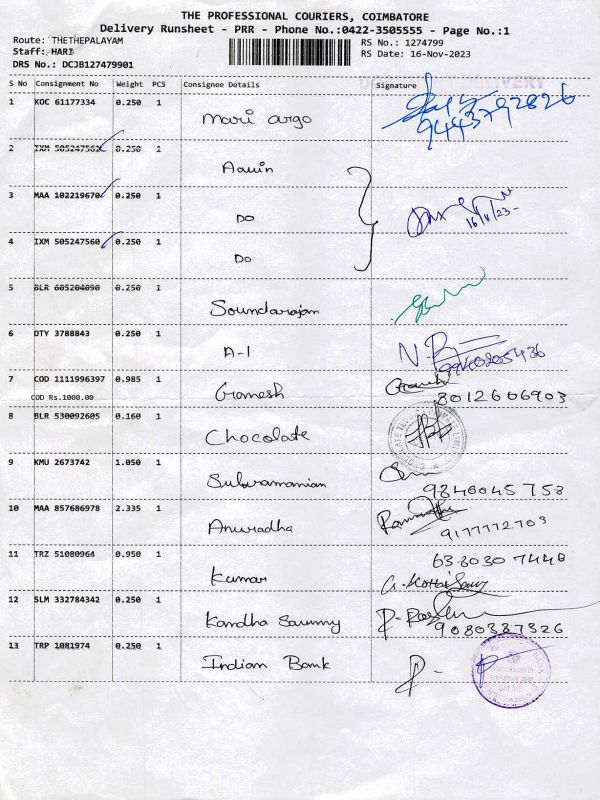 THE PROFESSIONAL COURIERS, COIMBATORE
Delivery Runsheet - PRR - Phone No.:0422-3505555 - Page No.:1
Route: THETHEPALAYAM
Staff: HARI
DRS No.: DCJB127479901
RS No.: 1274799
RS Date: 16-Nov-2023
S No Consignment No Weight PCS Consignee Details Signature
1 KOC 61177334 0.250 1 Mari Argo 9443792826
2 IXM 505247561 0.250 1 Aavin
3 MAA 102219670 0.250 1 DO 16/11/23-
4 IXM 505247560 0.250 1 DO
5 BLR 605204090 0.250 1 Soundarajan
6 DTY 3788843 0.250 1 A-1 9940205436
7 COD 1111996397 0.985 1 Ganesh Ganesh
COD Rs.1000.00 8012606903
8 BLR 530092605 0.160 1 Chocolate
9 KMU 2673742 1.050 1 Subramanian
9846045758
10 MAA 857686978 2.335 1 Anuradha
9177772703
11 TRZ 51080964 0.950 1 Kumar 63 8030 7448
12 SLM 332784342 0.250 1 Kandha Sammy
9080387326
13 TRP 1081974 0.250 1 Indian Bank